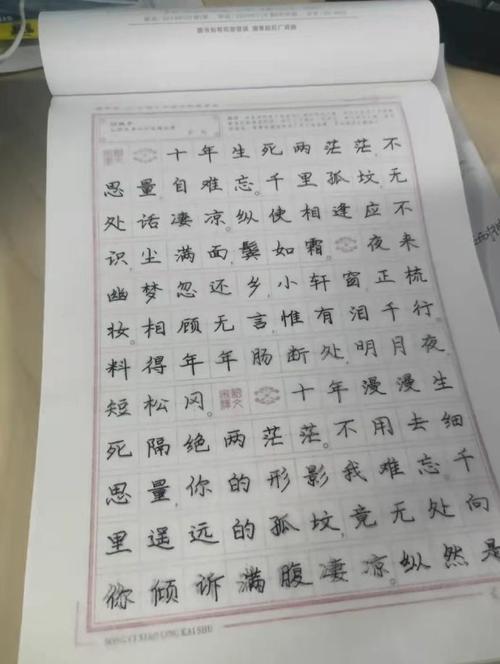 十年生死两茫茫,不
思量,自难忘。千里孤坟,无
处话凄凉。纵使相逢应不
识,尘满面,鬓如霜。夜来
幽梦忽还乡,小轩窗,正梳
妆。相顾无言,惟有泪千行。
料得年年肠断处,明月夜,
短松冈。十年漫漫生
死隔绝两茫茫。不用去细
思量,你的形影我难忘。千
里遥远的孤坟,竟无处向
你倾诉满腹凄凉。纵然是
SONG CI XIAO QING KAI SHU